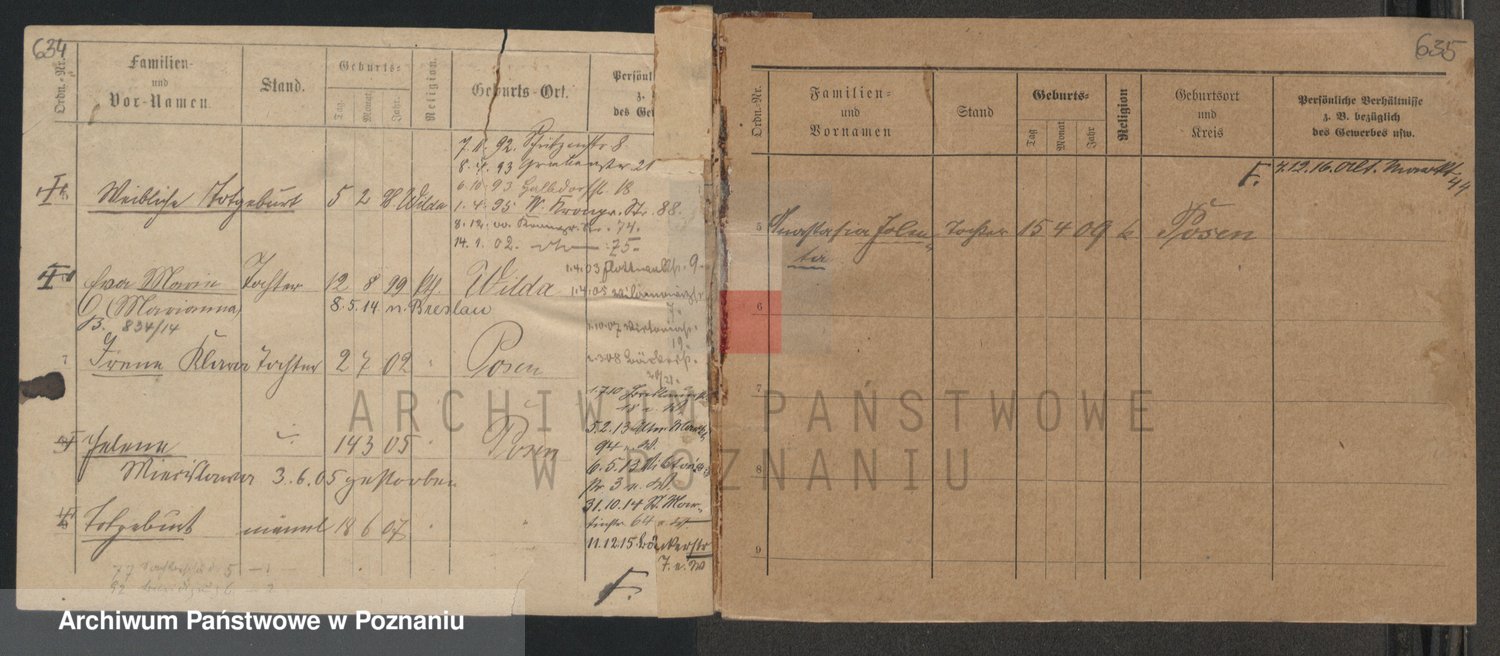 634
Ordn.-Nr.
Familien-
und
Vor-Namen.
Stand.
Geburts-
Tag.
Monat.
Jahr.
Religion.
Geburts-Ort.
Persönl
z.
des Ge
7. 92. Schützenstr 8
8. 4. 93 Grabenstr 21
6 10 93 Halbdorfstr 18
1. 4. 95 W. Kronpr. Str. 88.
8. 12. 00. 74.
14. 1. 02. 75.
Weibliche Totgeburt 5 2 98 Wilda
Eva Marie Tochter 12 8 99 kth Wilda
(Marianna) 8. 5. 14 n. Breslau
B. 834/14
1.4.03 Flottwellstr. 9
1.4.05
1.10.07
19.
7 Irene Klara Tochter 2 7 02 " Posen
2.3.08 Bäckerstr.
20/21.
1.7.10
18 n. W.
Helena 14 3 05 Posen
5.2.13 Alter Markt
94 n. W.
Miecislawa 3. 6. 05 gestorben
6.5.13 Viktoria
str 3 n. W.
31.10.14 St. Mar-
tinstr. 64
Totgeburt männl 18 6 07 "
11.12.15 Bäckerstr
7. n. W
F.
635
Ordn.-Nr.
Familien-
und
Vornamen
Stand
Geburts-
Tag
Monat
Jahr
Religion
Geburtsort
und
Kreis
Persönliche Verhältnisse
z. B. bezüglich
des Gewerbes usw.
F. 7.12.16. Alt. Markt
44
5 Anastasia Jolen- Tochter 15 4 09 k Posen
ta
6
7
8
9
ARCHIWUM PAŃSTWOWE
W POZNANIU
Archiwum Państwowe w Poznaniu